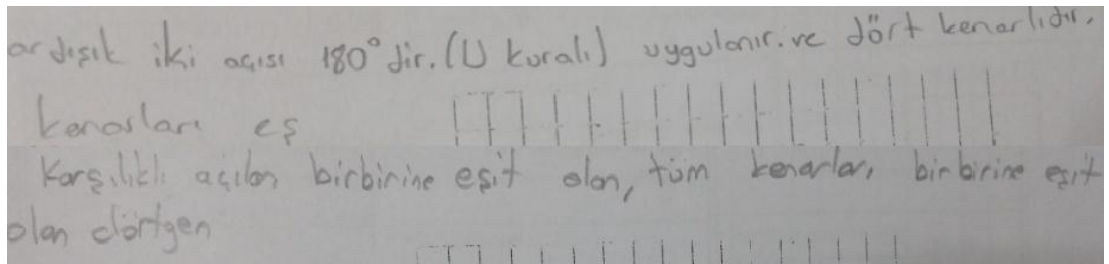 ardışık iki açısı 180° dir. (U kuralı) uygulanır. ve dört kenarlıdır.
kenarları eş
Karşılıklı açıları birbirine eşit olan, tüm kenarları birbirine eşit
olan dörtgen